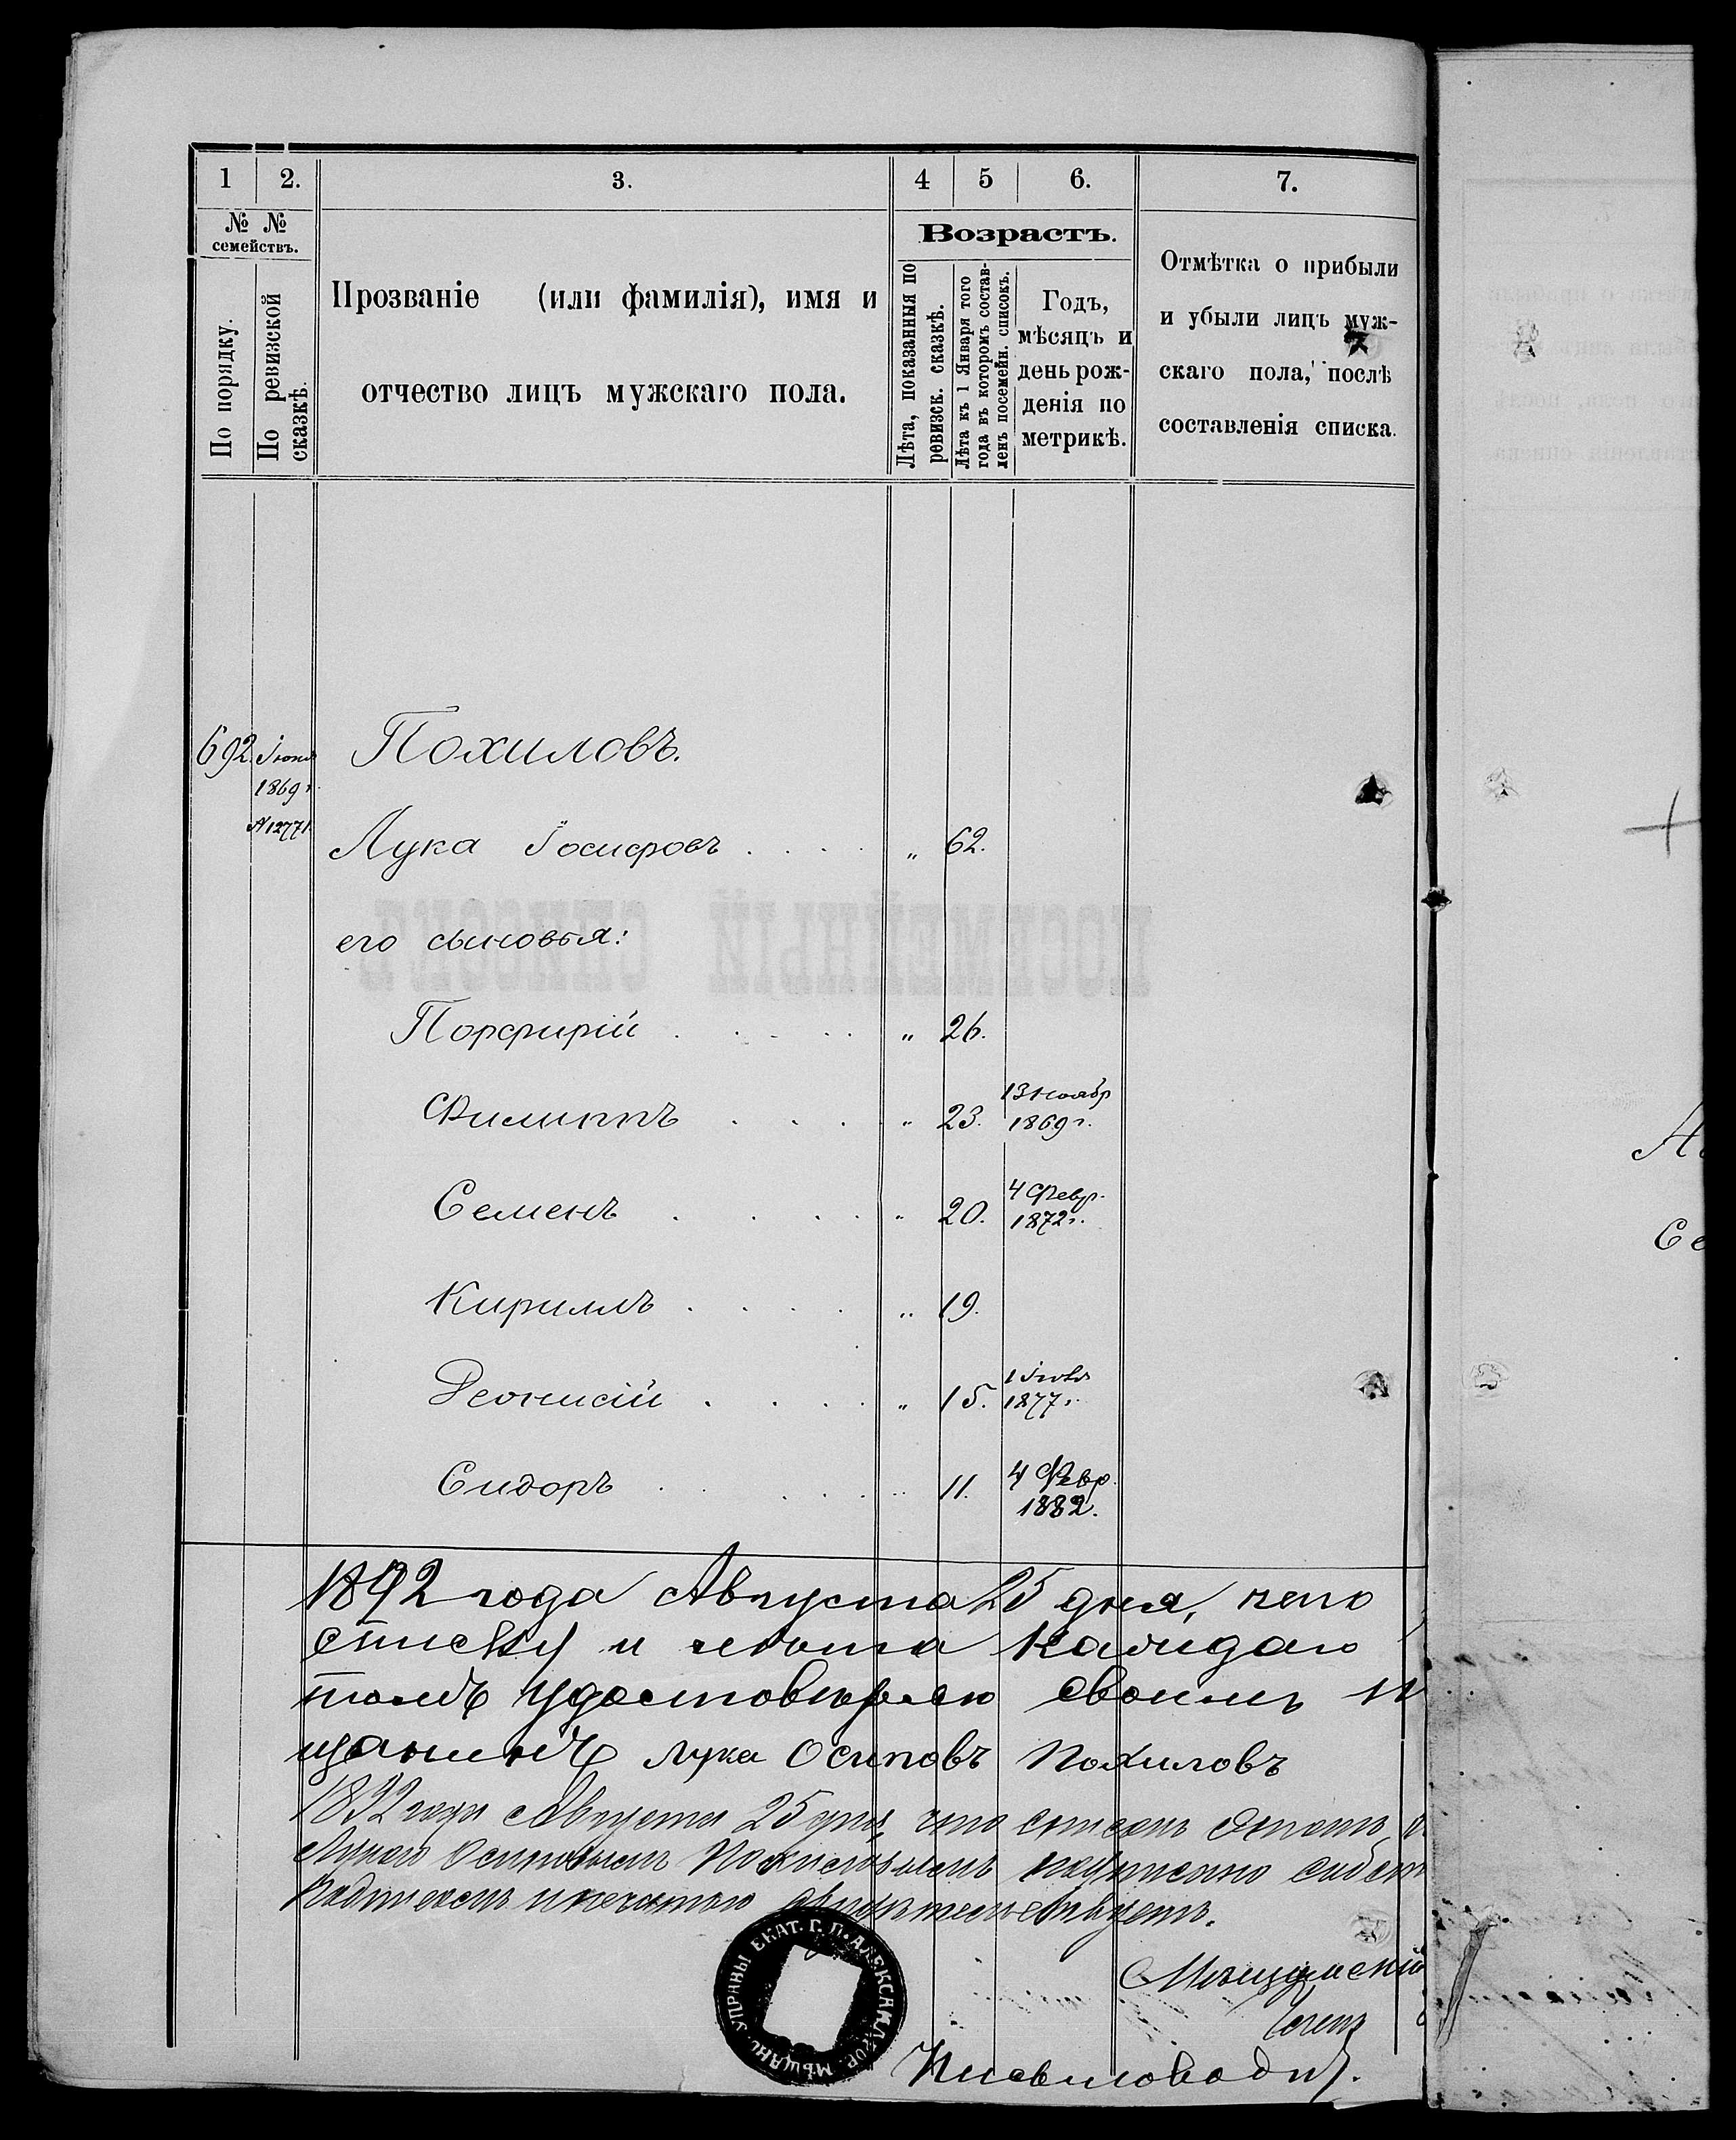 1 2. 3. 4 5 6. 7.
№ №
семействъ.
По порядку.
По ревизской
сказкѣ.
Прозваніе (или фамилія), имя и
отчество лицъ мужскаго пола.
Возрастъ.
Лѣта, показанныя по
ревизск. сказкѣ.
Лѣта къ 1 Января того
года въ которомъ состав-
ленъ посемейн. списокъ.
Годъ,
мѣсяцъ и
день рож-
денія по
метрикѣ.
Отмѣтка о прибыли
и убыли лицъ муж-
скаго пола, послѣ
составленія списка.
692. Похиловъ.
1869 г.
№ 12771
Лука Іосифовъ . . . . „ 62.
его сыновья:
Порфирій . . . . . „ 26.
Филиппъ . . . . „ 23. 13 Ноябр
1869 г.
Семенъ . . . . . „ 20. 4 Февр.
1872 г.
Кириллъ . . . . „ 19.
Деонисій . . . . „ 15. 1
1877 г.
Сидоръ . . . . . „ 11. 4 Февр.
1882.
1892 года Августа 25 дня, чего
списку и
удостовѣряю своимъ
щанинъ Лука Осиповъ Похиловъ
1892 года Августа 25 дня, что списокъ этотъ
Лукою Осиповымъ Похиловымъ подписано
подписомъ и печатью
Мѣщанскій
УПРАВЫ ЕКАТ. Г. П. АЛЕКСАНДРОВ. МѢЩАНС.
Письмоводит.